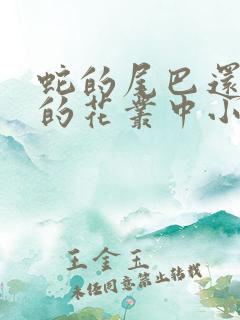 蛇的尾巴還
的花叢中小
王金玉
未经同意禁止转载